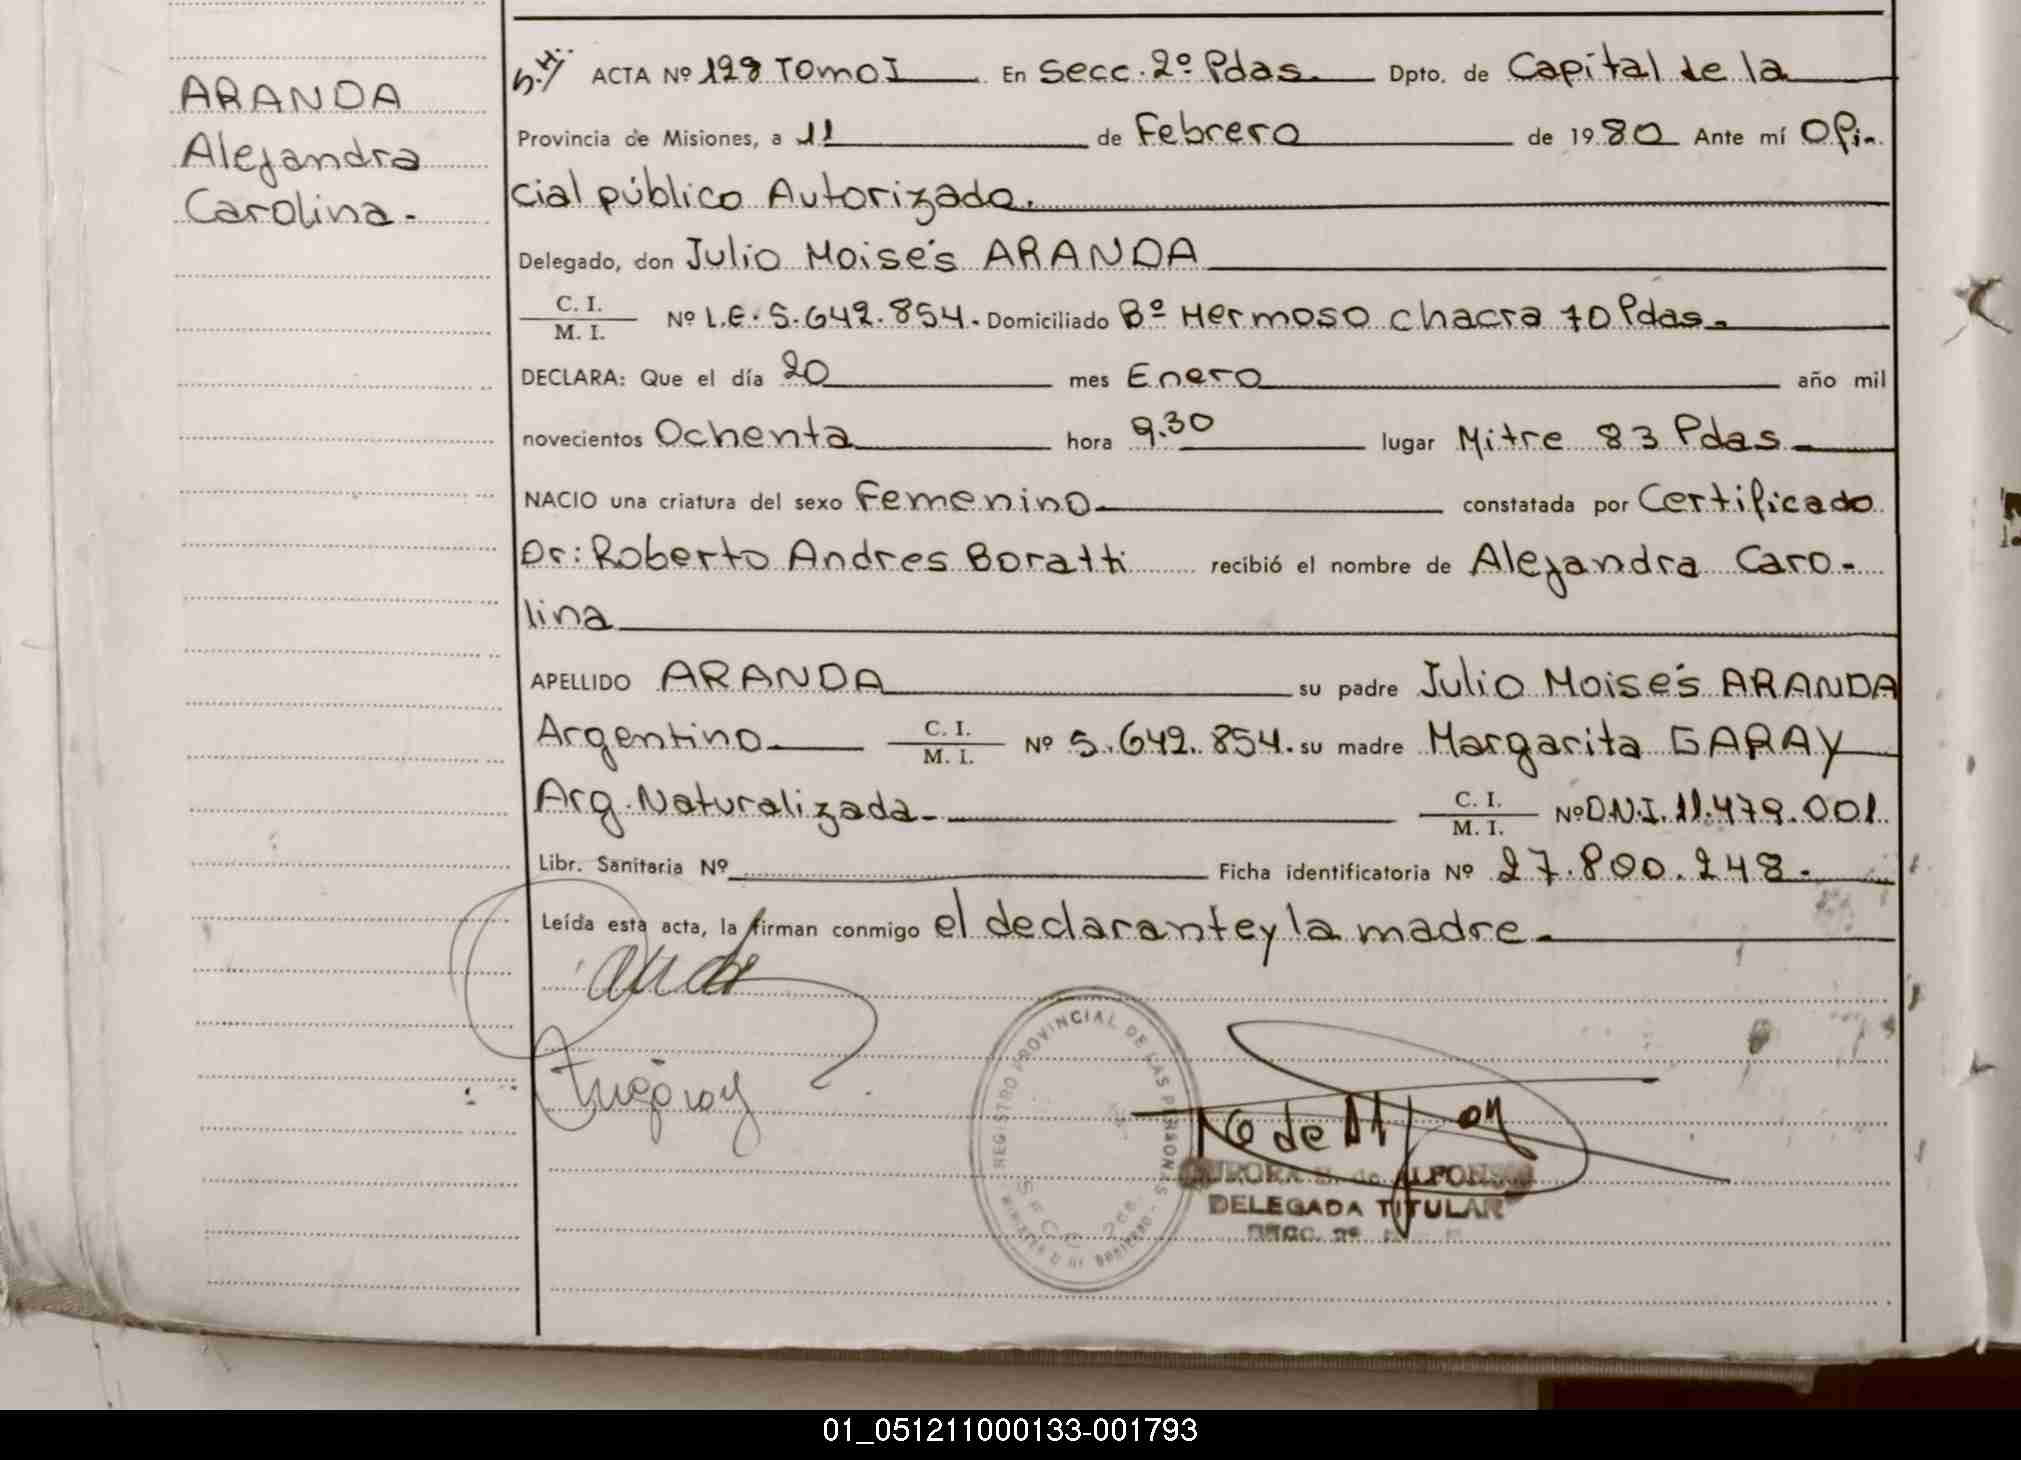 ARANDA
Alejandra
Carolina.
S.H. ACTA Nº 129 Tomo I En Secc. 2º Pdas. Dpto. de Capital de la
Provincia de Misiones, a 11 de Febrero de 1980 Ante mí Ofi-
cial público Autorizado.
Delegado, don Julio Moisés ARANDA
C. I.
M. I. Nº L.E. 5.642.854. Domiciliado Bº Hermoso chacra 70 Pdas.
DECLARA: Que el día 20 mes Enero año mil
novecientos Ochenta hora 9.30 lugar Mitre 83 Pdas
NACIO una criatura del sexo Femenino constatada por Certificado
Dr: Roberto Andres Boratti recibió el nombre de Alejandra Caro-
lina
APELLIDO ARANDA su padre Julio Moisés ARANDA
Argentino C. I. M. I. Nº 5.642.854. su madre Margarita GARAY
Arg. Naturalizada C. I. M. I. Nº D.N.I. 11.479.001.
Libr. Sanitaria Nº Ficha identificatoria Nº 27.800.248.
Leída esta acta, la firman conmigo el declarante y la madre.
REGISTRO PROVINCIAL DE LAS PERSONAS
AURORA N. de ALFONSO
DELEGADA TITULAR
SECC. 2º
01_051211000133-001793